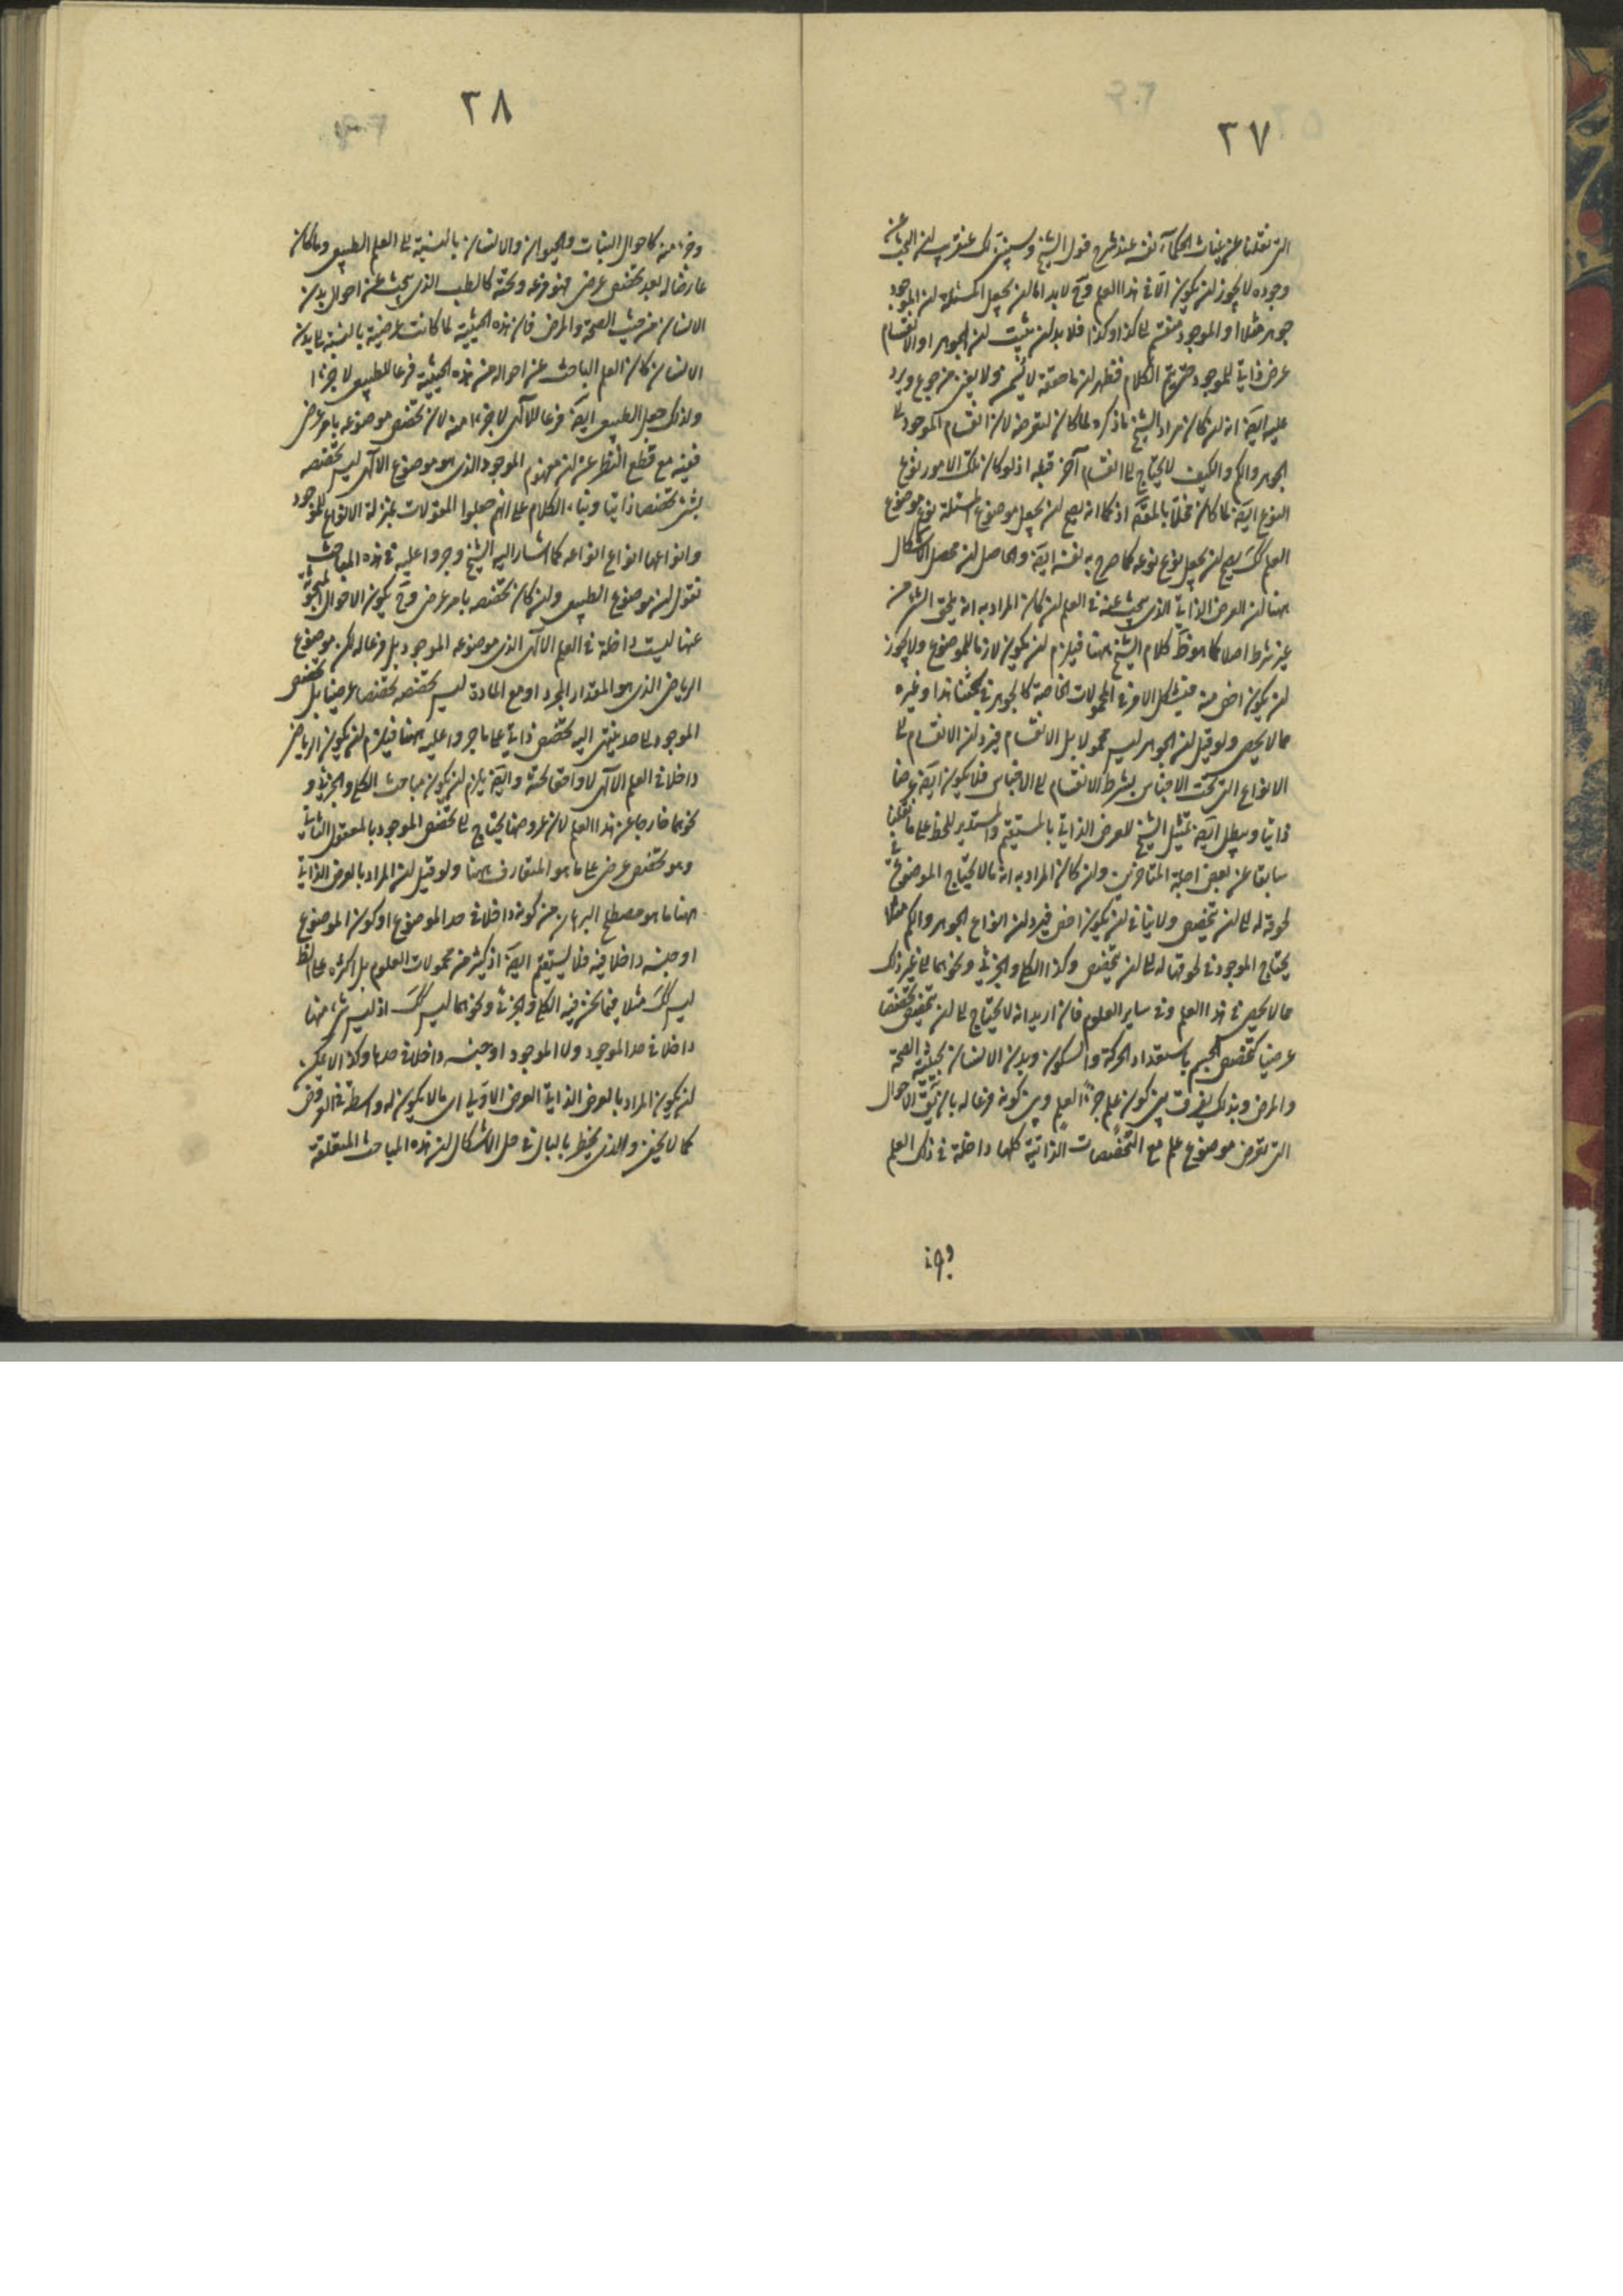 ٢٧
التى نقلناه عن غياث الحكماء نفسه عند شرح قول الشيخ وسيتبين لك عن قريب ان البحث عن
وجوده لا يجوز ان يكون الا فى هذا العلم وح لا بد اما ان يجعل المسئلة ان الموجود
جوهر مثلا او الموجود منقسم الى كذا وكذا فلا بد ان يثبت ان الجوهر او الانقسام
عرض ذاتى للموجود حتى يتم الكلام فظهر ان ما حققه لا يسمن ولا يغنى من جوع ويرد
عليه ايضا انه ان كان مراد الشيخ ما ذكره لما كان لتعرضه لان انقسام الموجود الى
الجوهر والكم والكيف لا يحتاج الى انقسام آخر قبله اذ لو كان تلك الامور نوع
النوع ايضا لما كان مخلا بالمقصود اذ كما انه يصح ان يجعل موضوع المسئلة نوع موضوع
العلم كك يصح ان يجعل نوع نوعه كما صرح به نفسه ايضا والحاصل ان محصل الاشكال
ههنا ان العرض الذاتى الذى يبحث عنه فى العلم ان كان المراد به انه يلحق الشىء من
غير شرط اصلا كما هو ظ كلام الشيخ ههنا فيلزم ان يكون لازما للموضوع ولا يجوز
ان يكون اخص منه فيشكل الامر فى المحمولات الخاصة كالجوهر فى بحثنا هذا وغيره
مما لا يحصى ولو قيل ان الجوهر ليس محمولا بل الانقسام فيرد ان الانقسام الى
الانواع التى تحت الاجناس بشرط الانقسام الى الاجناس فلا يكون ايضا عرضا
ذاتيا ويبطل ايضا تمثيل الشيخ للعرض الذاتى بالمستقيم والمستدير للخط على ما نقلنا
سابقا عن بعض اجلة المتاخرين وان كان المراد به انه ما لا يحتاج الموضوع فى
لحوقه له الى ان يتخصص ولا ينافى ان يكون اخص فيرد ان انواع الجوهر والكم مثلا
يحتاج الموجود فى لحوقها له الى ان يتخصص وكذا الكلى والجزئى ونحوهما الى غير ذلك
مما لا يحصى فى هذا العلم وفى ساير العلوم فان اريد انه لا يحتاج الى ان يتخصص تخصصا
عرضيا كتخصص الجسم باستعداد الحركة والسكون وبدن الانسان بحيثية الصحة
والمرض وبذلك يفرق بين كون علم جزءا لعلم وبين كونه فرعا له بان يكون الاحوال
التى تعرض موضوع علم مع التخصصات الذاتية كلها داخلة فى ذلك العلم
وجزء
٢٨
وجزء منه كاحوال النبات والحيوان والانسان بالنسبة الى العلم الطبيعى وما كان
عارضا له بعد تخصص عرضى فهو فرعه وتحته كالطب الذى يبحث عن احوال بدن
الانسان من حيث الصحة والمرض فان هذه الحيثية لما كانت عرضية بالنسبة الى بدن
الانسان كان العلم الباحث عن احواله من هذه الحيثية فرعا للطبيعى لا جزءا
ولذلك جعل الطبيعى ايضا فرعا للالهى لا جزءا منه لان تخصص موضوعه بامر عرضى
ففيه مع قطع النظر عن ان مفهوم الموجود الذى هو موضوع الالهى ليس تخصصه
بشىء تخصصا ذاتيا وبناء الكلام على انهم جعلوا المقولات بمنزلة الانواع للموجود
وانواعها انواع انواعه كما اشار اليه الشيخ وجروا عليه فى هذه المباحث
نقول ان موضوع الطبيعى وان كان تخصصه بامر عرضى وح يكون الاحوال المبحوثة
عنها ليست داخلة فى العلم الالهى الذى موضوعه الموجود بل فرعا له لكن موضوع
الرياضى الذى هو المقدار المجرد او مع المادة ليس تخصصه تخصصا عرضيا بل تخصص
الموجود الى حد ينتهى اليه تخصص ذاتى على ما جروا عليه ههنا فيلزم ان يكون الرياضى
داخلا فى العلم الالهى لا واقعا تحته وايضا يلزم ان يكون مباحث الكلى والجزئى و
نحوهما خارجا عن هذا العلم لان عروضها يحتاج الى تخصص الموجود بالمعقول الثانى
وهو تخصص عرضى على ما هو المتعارف ههنا ولو قيل ان المراد بالعرض الذاتى
ههنا ما هو مصطلح البرهان من كونه داخلا فى حد الموضوع او كون الموضوع
او جنسه داخلا فيه فلا يستقيم ايضا اذ كثير من محمولات العلوم بل اكثره على الظ
ليس كك مثلا فيما نحن فيه الكلى والجزئى ونحوهما ليس كك اذ ليس شىء منها
داخلا فى حد الموجود ولا الموجود او جنسه داخلا فى حدها وكذا لا يمكن
ان يكون المراد بالعرض الذاتى العرض الاولى اى ما لا يكون له واسطة فى العروض
كما لا يخفى والذى يخطر بالبال فى حل الاشكال ان هذه المباحث المتعلقة